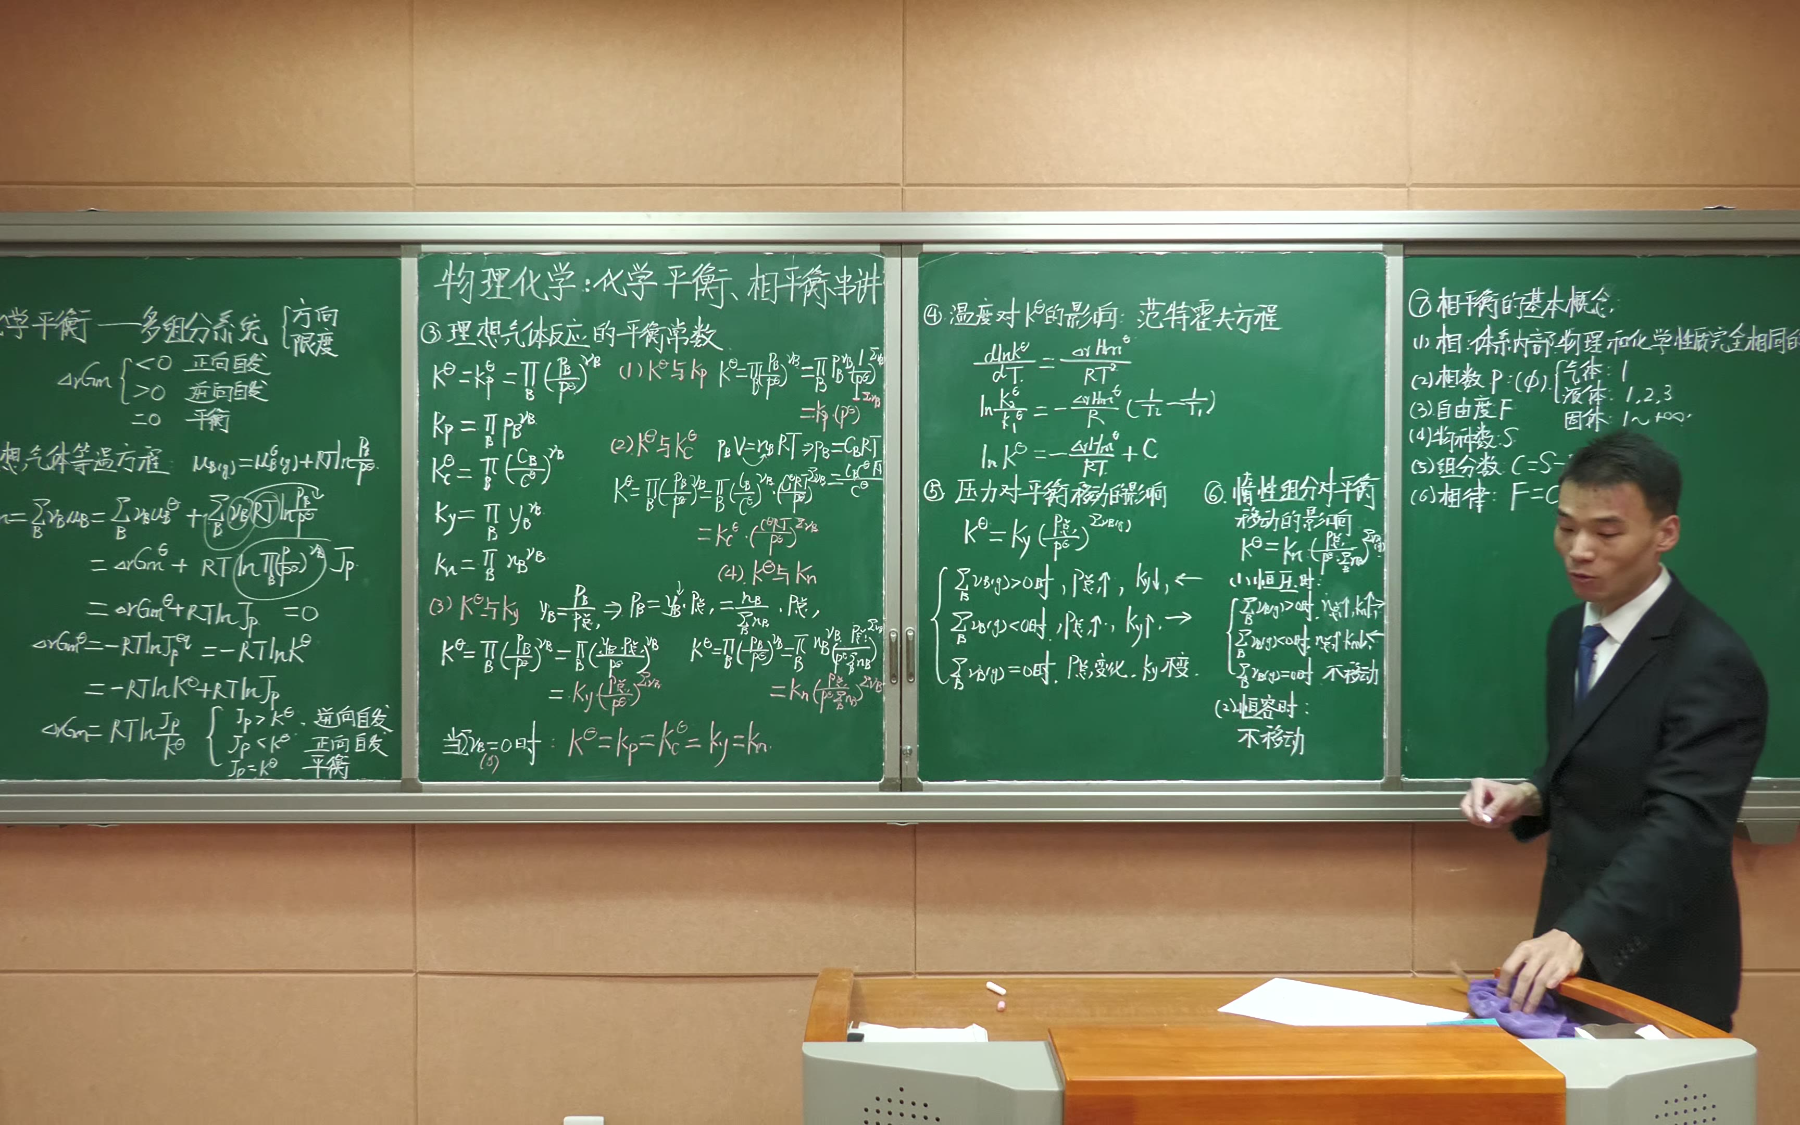 学平衡——多组分系统 { 方向 限度
ΔrGm { <0 正向自发
>0 逆向自发
=0 平衡
想气体等温方程: μB(g)=μB^θ(g)+RTln PB/P^θ
=∑B νBμB=∑B νBμB^θ+∑B νB RT ln PB/P^θ
=ΔrGm^θ+RT ln∏B(PB/P^θ)^νB Jp
=ΔrGm^θ+RTlnJp =0
ΔrGm^θ=-RTlnJp^eq=-RTlnK^θ
=-RTlnK^θ+RTlnJp
ΔrGm=RTln Jp/K^θ { Jp>K^θ. 逆向自发
Jp<K^θ 正向自发
Jp=K^θ 平衡
物理化学:化学平衡、相平衡串讲
③理想气体反应的平衡常数
K^θ=Kp^θ=∏B(PB/P^θ)^νB
Kp=∏B PB^νB
Kc^θ=∏B(CB/C^θ)^νB
Ky=∏B yB^νB
Kn=∏B nB^νB
(1) K^θ与Kp K^θ=∏B(PB/P^θ)^νB=∏B PB^νB(1/P^θ)^∑νB
=Kp·(P^θ)^-∑νB
(2) K^θ与Kc^θ PBV=nBRT⇒PB=CBRT
K^θ=∏B(PB/P^θ)^νB=∏B(CB/C^θ)^νB·(C^θRT/P^θ)^∑νB
=Kc^θ·(C^θRT/P^θ)^∑νB
(3) K^θ与Ky yB=PB/P总,⇒PB=yB·P总,=nB/∑B nB·P总,
K^θ=∏B(PB/P^θ)^νB=∏B(yB·P总/P^θ)^νB
=Ky(P总/P^θ)^∑νB
(4). K^θ与Kn
K^θ=∏B(PB/P^θ)^νB=∏B nB^νB(P总/P^θ∑B nB)^∑νB
=Kn(P总/P^θ∑B nB)^∑νB
当∑νB(g)=0时: K^θ=Kp=Kc^θ=Ky=Kn.
④.温度对K^θ的影响: 范特霍夫方程
dlnK^θ/dT=ΔrHm^θ/RT²
ln K2^θ/K1^θ=-ΔrHm^θ/R(1/T2-1/T1)
lnK^θ=-ΔrHm^θ/RT+C
⑤ 压力对平衡移动的影响
K^θ=Ky(P总/P^θ)^∑νB(g)
{ ∑B νB(g)>0时,P总↑,Ky↓,←
∑B νB(g)<0时,P总↑,Ky↑,→
∑B νB(g)=0时.P总变化.Ky不变.
⑥.惰性组分对平衡
移动的影响
K^θ=Kn(P总/P^θ·∑B nB)^∑νB(g)
(1)恒压时:
{ ∑B νB(g)>0时.n总↑,Kn↑→
∑B νB(g)<0时.n总↑Kn↓←
∑B νB(g)=0时 不移动
(2)恒容时:
不移动
⑦相平衡的基本概念:
(1)相:体系内部物理和化学性质完全相同的
(2)相数P:(φ).{ 气体:1
液体:1,2,3
固体:1~+∞.
(3)自由度F
(4)物种数:S
(5)组分数:C=S-
(6)相律: F=C